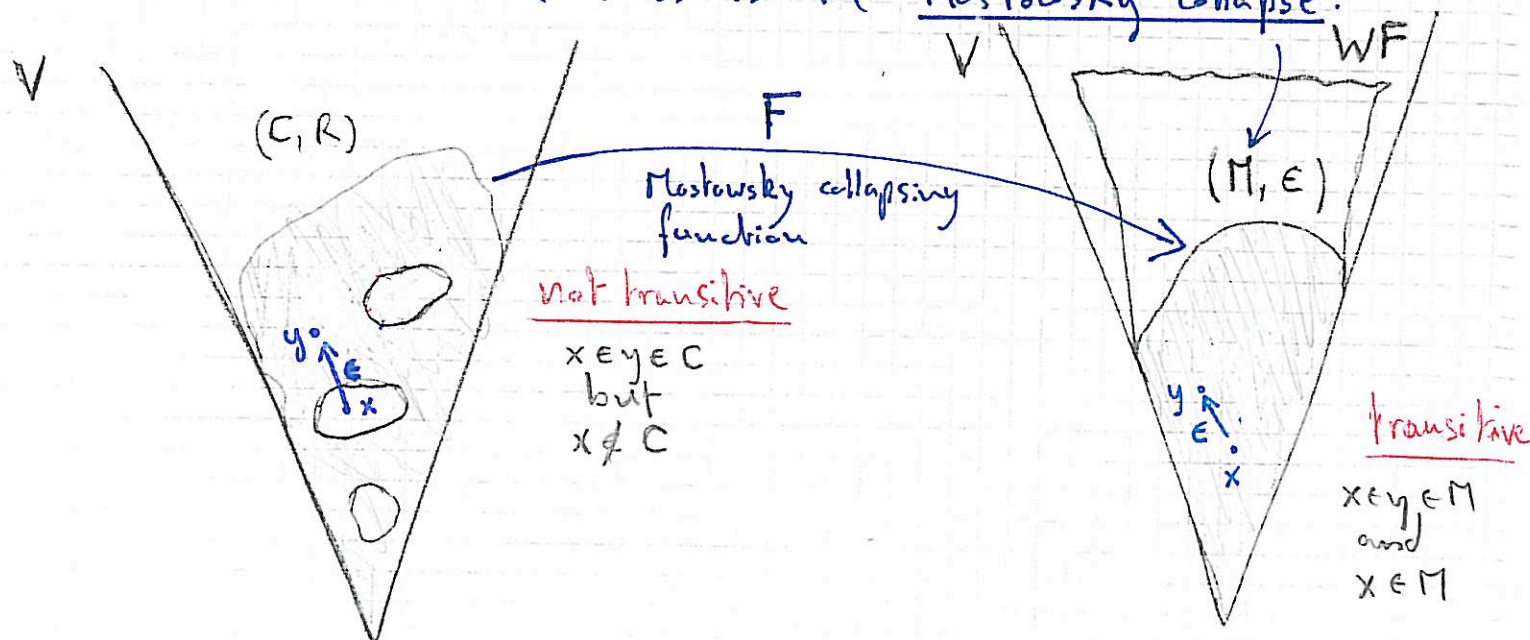 Mostowsky collapse.
V
(C, R)
F
Mostowsky collapsing
function
not transitive
x ∈ y ∈ C
but
x ∉ C
y
∈
x
V
WF
(M, ∈)
y
∈
x
transitive
x ∈ y ∈ M
and
x ∈ M